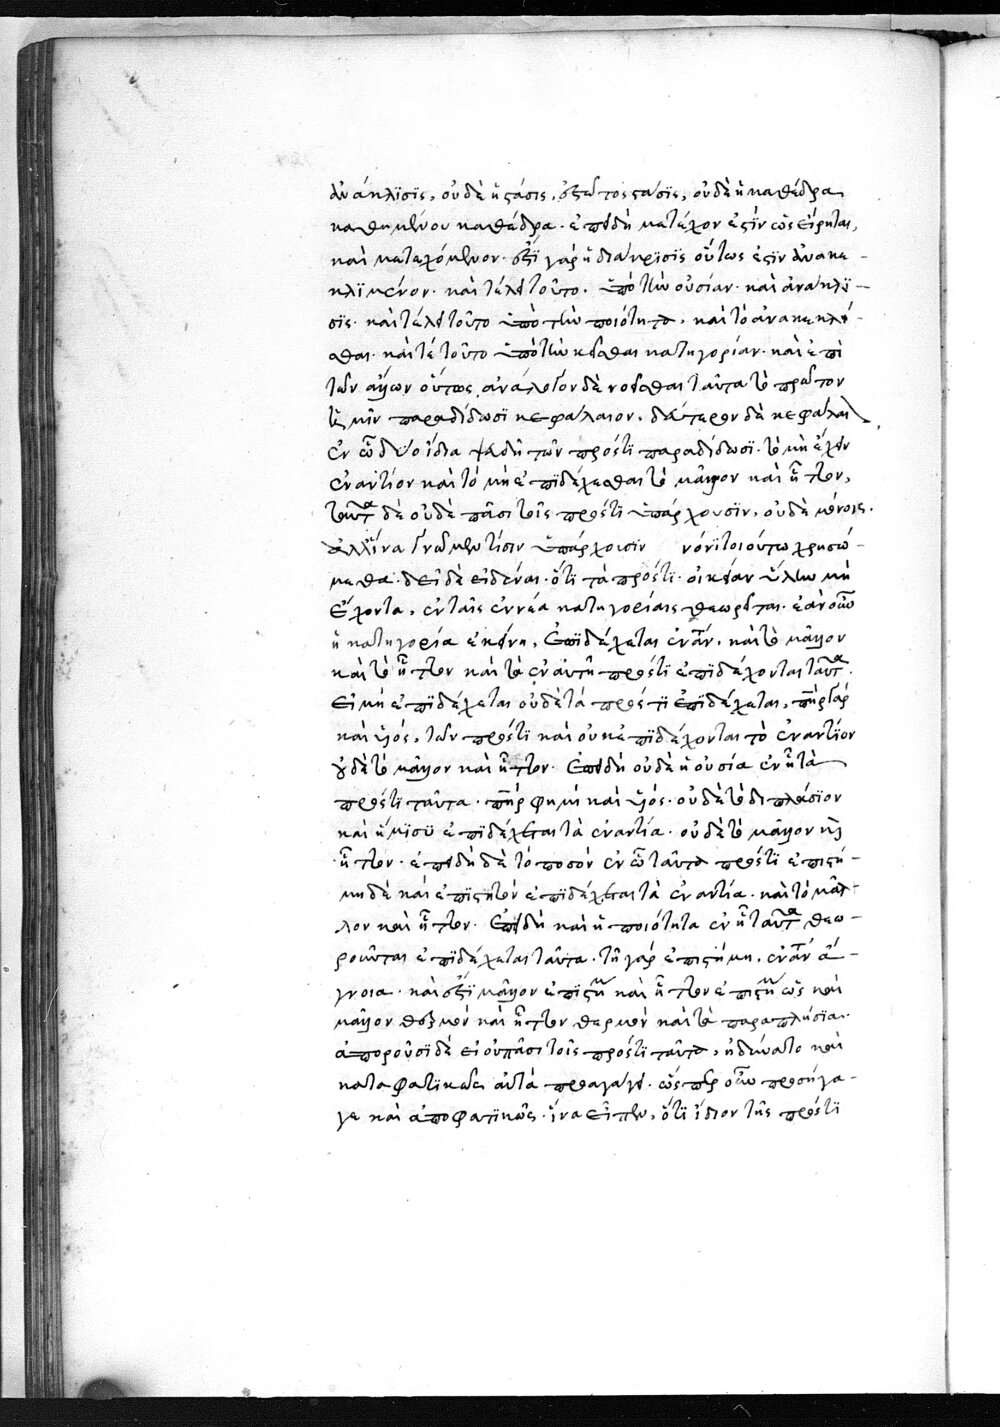 ἀνάκλϊσϊς, οὐδὲ ἡ στάσις, ἑστῶτος στάσϊς, οὐδὲ ἡ καθέδρα
καθημένου καθέδρα· ἐπειδὴ κατέχον ἐστὶν ὡς εἴρηται,
καὶ κατεχόμενον· ἔστϊ γὰρ ἡ διαίρεσϊς οὕτως ἐστὶν ἀνακε-
κλϊμένον· καὶ τελεῖ τοῦτο· ὑπὸ τὴν οὐσίαν· καὶ ἀνάκλϊ-
σϊς· καὶ τελεῖ τοῦτο ὑπὸ τὴν ποιότητα· καὶ τὸ ἀνακεκλεῖ-
σθαι· καὶ τὲ τοῦτο ὑπὸ τὴν κεῖσθαι κατηγορίαν· καὶ ἐπὶ
τῶν ἄλλων οὕτως, ἀνάλογον δὲ νοεῖσθαι ταῦτα τὸ πρῶτον
ἡμῖν παραδίδωσϊ κεφάλαιον· δεύτερον δὲ κεφάλαι
ἐν ᾧ δύο ἴδια ψευδῆ τῶν πρόστϊ παραδίδωσϊ· τὸ μὴ ἔχειν
ἐναντίον καὶ τὸ μὴ ἐπϊδέχεσθαι τὸ μᾶλλον καὶ ἧττον,
ταῦτα δὲ οὐδὲ πᾶσι τοῖς πρόστϊ ὑπάρχουσϊν, οὐδὲ μόνοις.
ἀλλ' ἵνα γνῶμεν τίσιν ὑπάρχουσϊν κανόνϊ τοιούτω χρησώ-
μεθα· δεῖ δὲ εἰδέναι· ὅτϊ τὰ πρόστϊ· οἰκείαν ὕλην μὴ
ἔχοντα, ἐν ταῖς ἐννέα κατηγορίαις θεωρεῖται· ἐὰν οὖν
ἡ κατηγορία ἐκείνη, ἐπϊδέχεται ἐναντίον, καὶ τὸ μᾶλλον
καὶ τὸ ἧττον καὶ τὰ ἐν αὐτῇ πρόστϊ ἐπϊδέχονται ταῦτα.
εἰ μὴ ἐπϊδέχεται οὐδὲ τὰ πρόστϊ ἐπϊδέχεται, πατὴρ γὰρ
καὶ υἱός, τῶν πρόστϊ καὶ οὐκ ἐπϊδέχονται τὸ ἐναντίον
οὐδὲ τὸ μᾶλλον καὶ ἧττον· ἐπειδὴ οὐδὲ ἡ οὐσία ἐν ᾗ τὰ
πρόστϊ ταῦτα· πατὴρ φημὶ καὶ υἱός· οὐδὲ τὸ διπλάσϊον
καὶ ἥμισϋ ἐπϊδέχεται τὰ ἐναντία· οὐδὲ τὸ μᾶλλον καὶ
ἧττον· ἐπειδὴ δὲ τὸ ποσὸν ἐν ᾧ ταῦτα πρόστϊ ἐπιστή-
μη δὲ καὶ ἐπϊστητὸν ἐπϊδέχεται τὰ ἐναντία· καὶ τὸ μᾶλ-
λον καὶ ἧττον· ἐπειδὴ καὶ ἡ ποιότητα ἐν ᾗ ταῦτα θεω-
ροῦνται ἐπϊδέχεται ταῦτα· τῇ γὰρ ἐπιστήμη, ἐναντίον ἄ-
γνοια· καὶ ἔστϊ μᾶλλον ἐπιστήμη καὶ ἧττον ἐπιστήμη ὡς καὶ
μᾶλλον θερμὸν καὶ ἧττον θερμὸν καὶ τὰ παραπλήσϊα·
ἀποροῦσϊ δὲ εἰ οὐ πᾶσι τοῖς πρόστϊ ταῦτα, ἠδύνατο καὶ
καταφατϊκῶς αὐτὰ προαγαγεῖν· ὥσπερ οὖν προσήγα-
γε καὶ ἀποφατϊκῶς· ἵνα εἴπῃ, ὅτϊ ἴδιον τῆς πρόστϊ